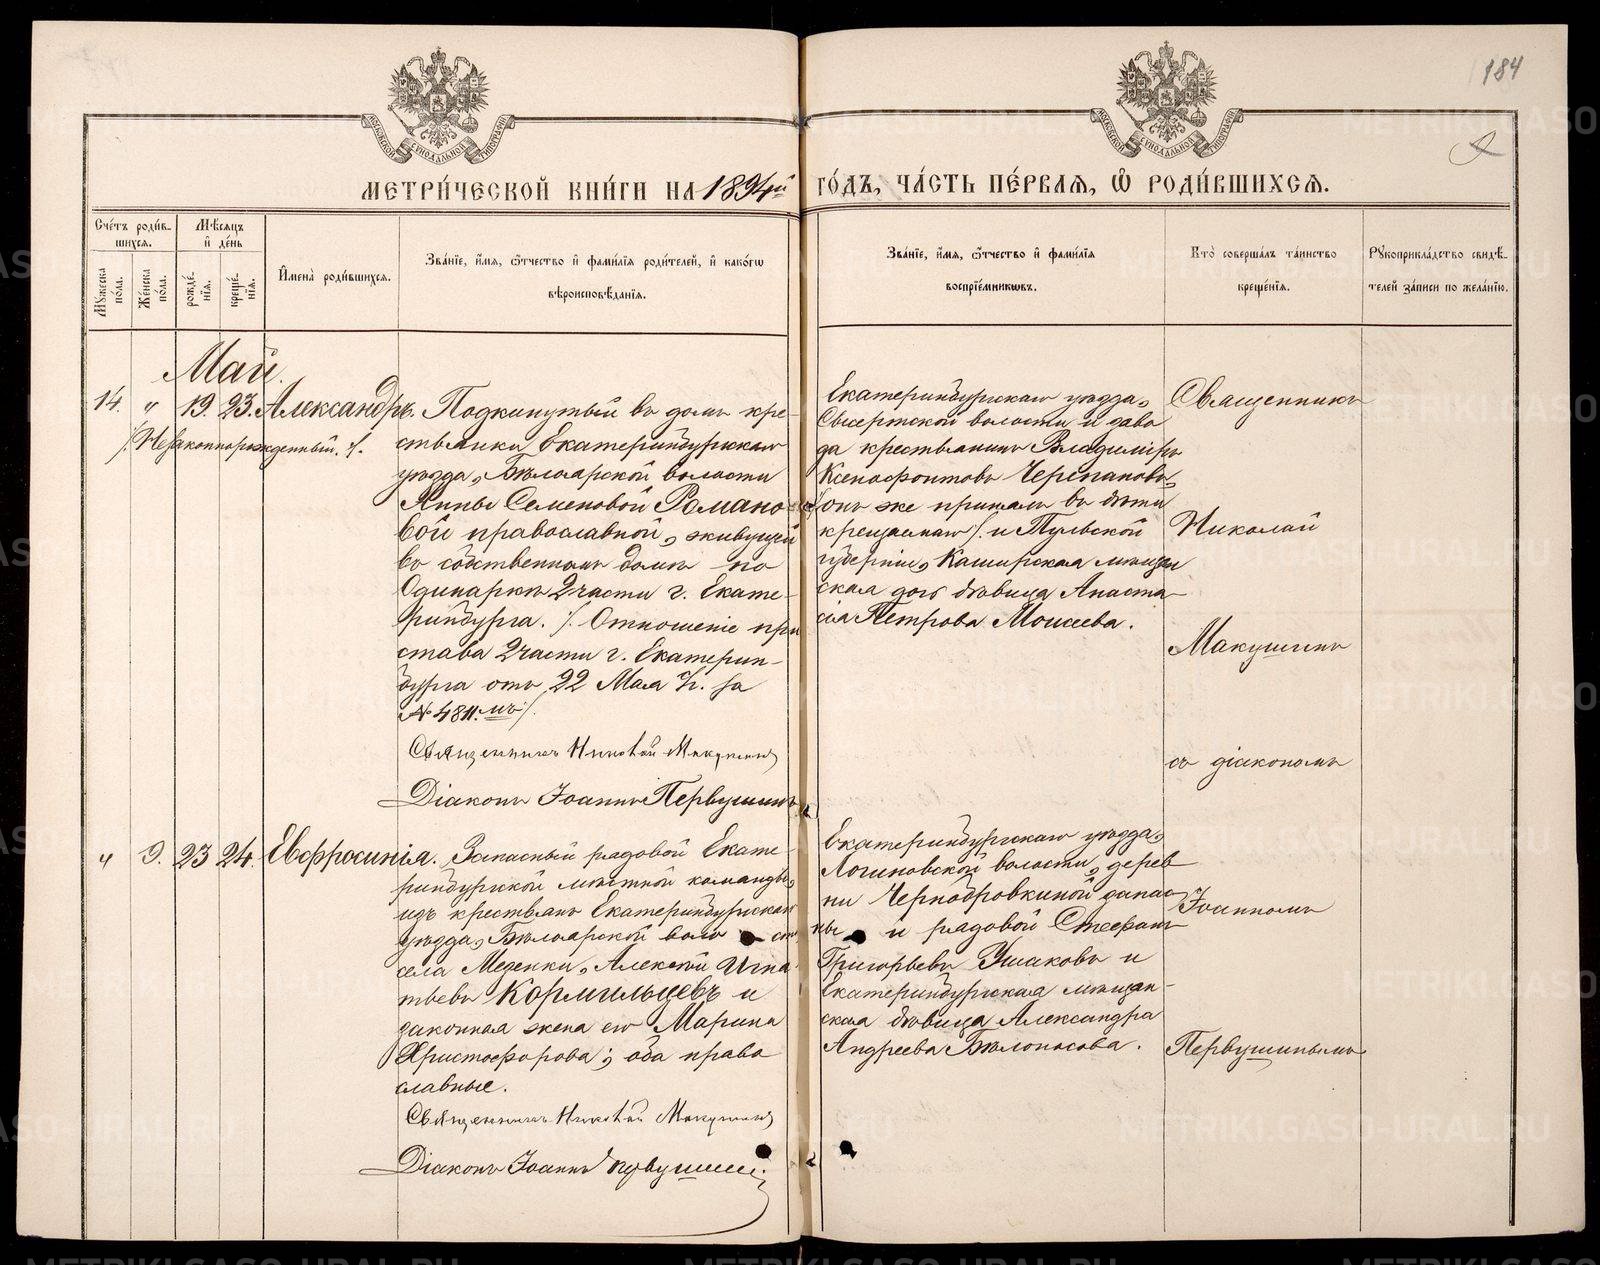 184
МОСКОВСКОЙ СѴНОДАЛЬНОЙ ТИПОГРАФІИ
МОСКОВСКОЙ СѴНОДАЛЬНОЙ ТИПОГРАФІИ
МЕТРИ́ЧЕСКОЙ КНИ́ГИ НА 1894й ГО́ДЪ, ЧА́СТЬ ПЕ́РВАѦ, Ѿ РОДИ́ВШИХСѦ.
Сче́тъ роди́вшихсѧ.
Мѣ́сѧцъ и де́нь
Мꙋ́жеска по́ла.
Же́нска по́ла.
рожде́нїѧ.
креще́нїѧ.
И́мена̀ роди́вшихсѧ.
Зва́нїе, и́мѧ, ѻ҆́тчество и фами́лїѧ роди́телей, и како́гѡ вѣроисповѣ́данїѧ.
Зва́нїе, и́мѧ, ѻ҆́тчество и фами́лїѧ воспрїе́мникѡвъ.
Кто̀ соверша́лъ та́инство креще́нїѧ.
Рꙋкоприкла́дство свидѣ́телей за́писи по жела́нїю.
Май.
14. " 19. 23. Александръ.
/. Незаконнорожденный. /.
Подкинутый въ домъ кре-
стьянки Екатеринбургскаго
уѣзда, Бѣлоярской волости
Анны Семеновой Романо-
вой православной, живущей
въ собственномъ домѣ по
Одинаркѣ 2 части г. Екате-
ринбурга. /. Отношеніе при
става 2 части г. Екатерин-
бурга отъ 22 Мая с/г. за
№ 4811.мъ /.
Священникъ Николай Макушинъ
Діаконъ Іоаннъ Первушинъ
Екатеринбургскаго уѣзда,
Сысертской волости и заво
да крестьянинъ Владиміръ
Ксенофонтовъ Черепановъ,
/онъ же принялъ въ дѣти
крещаемаго/. и Тульской
губерніи, Каширская мѣщан
ская дочь дѣвица Анаста-
сія Петрова Моисеева.
Священникъ
Николай
Макушинъ
съ діакономъ
" 9. 23 24. Евфросинія.
Запасный рядовой Екате-
ринбургской мѣстной команды,
изъ крестьянъ Екатеринбургскаго
уѣзда, Бѣлоярской воло ст
села Мезенки, Алексѣй Игна
тьевъ Кормильцевъ и
законная жена его Марина
Христофорова; оба право
славные.
Священникъ Николай Макушинъ
Діаконъ Іоаннъ Первушинъ.
Екатеринбургскаго уѣзда,
Логиновской волости, дерев
ни Чернобровкиной запас
ны и рядовой Стефанъ
Григорьевъ Ушаковъ и
Екатеринбургская мѣщан-
ская дѣвица Александра
Андреева Бѣлоносова.
Іоанномъ
Первушинымъ
METRIKI.GASO-URAL.RU